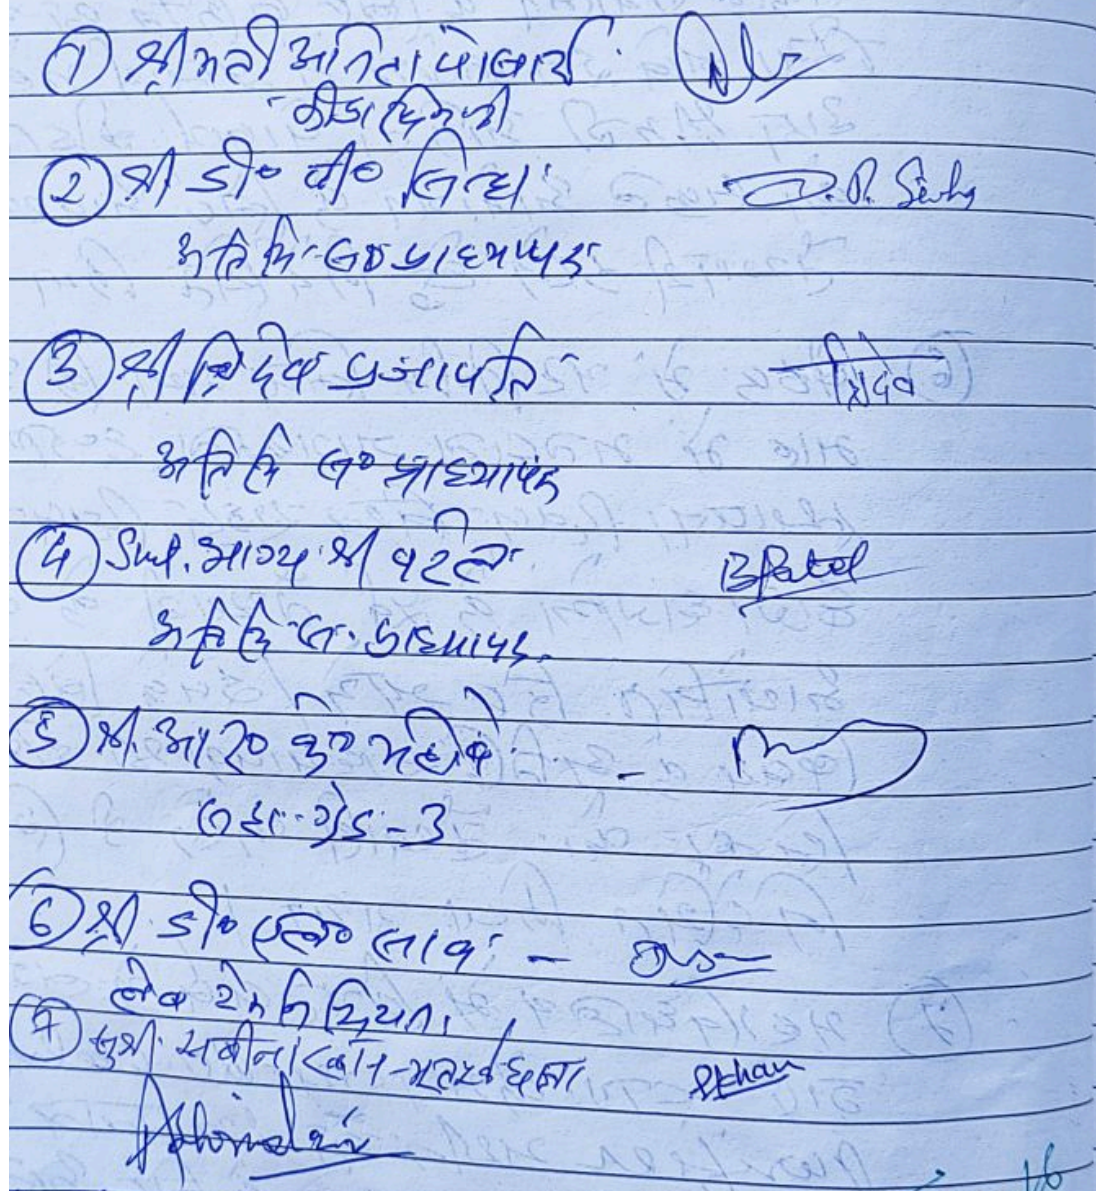 ① श्रीमती अनिता पोखार्य
क्रीडाधिकारी
② श्री डी० पी० सिन्हा D.P. Sinha
अतिथि स० प्राध्यापक
③ श्री त्रिदेव प्रजापति त्रिदेव
अतिथि स० प्राध्यापक
④ Smt. भाग्य श्री पटेल BPatel
अतिथि स. प्राध्यापक
⑤ श्री. आर० के० महोबे -
सहा. ग्रेड - 3
⑥ श्री. डी० एल० साव -
लैब टेक्निशियन
⑦ सुश्री. सबीना खान - Skhan
16